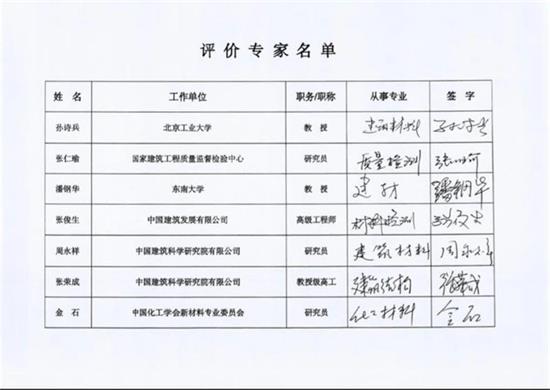 评价专家名单
姓名 工作单位 职务/职称 从事专业 签字
孙诗兵 北京工业大学 教授 建筑材料
张仁瑜 国家建筑工程质量监督检验中心 研究员 质量检测
潘钢华 东南大学 教授 建材 潘钢华
张俊生 中国建筑发展有限公司 高级工程师 材料检测
周永祥 中国建筑科学研究院有限公司 研究员 建筑材料 周永祥
张荣成 中国建筑科学研究院有限公司 教授级高工 建筑结构 张荣成
金石 中国化工学会新材料专业委员会 研究员 化工材料 金石